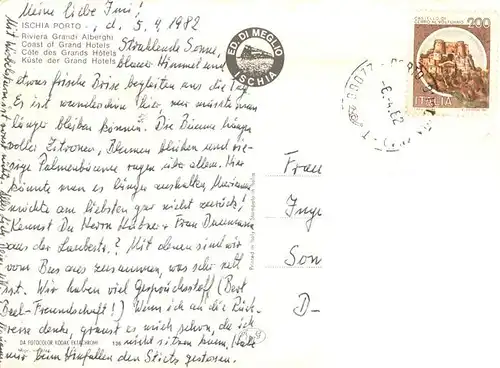 Meine liebe Inni!
ISCHIA PORTO - , d. 5.4.1982
Riviera Grandi Alberghi
Coast of Grand Hotels
Côte des Grands Hôtels
Küste der Grand Hotels
Strahlende Sonne,
blauer Himmel und
etwas frische Brise begleiten uns die Tage.
Es ist wunderschön hier, nur müsste man
länger bleiben können. Die Bäume hängen
voller Zitronen, Blumen blühen und rie-
sige Palmenbäume ragen über allem. Hier
könnte man es länger aushalten, Marianne
möchte am liebsten gar nicht zurück!
Kennst Du Herrn Hübner + Frau
aus der Laubestr.? Mit denen sind wir
vom Bus aus zusammen, was sehr nett
ist. Wir haben viel Gesprächsstoff (Bert
Beel-Freundschaft!) Wenn ich an die Rück-
reise denke, graust es mich schon, da ich
nicht sitzen kann. Habe
mir beim Hinfallen den Steiß gestossen.
ED DI MEGLIO
ISCHIA
200
ITALIA
-6.4.82
Frau
Inge
Son
D-
DA FOTOCOLOR KODAK EKTACHROME
136